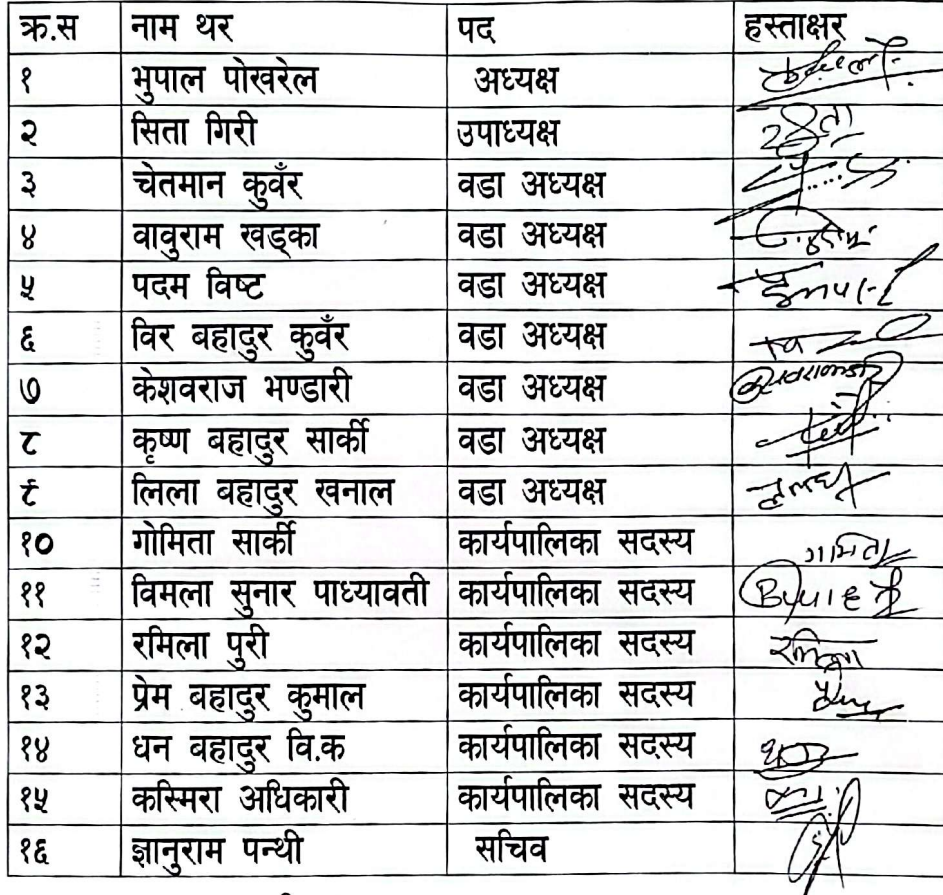 क्र.स नाम थर पद हस्ताक्षर
१ भुपाल पोखरेल अध्यक्ष
२ सिता गिरी उपाध्यक्ष
३ चेतमान कुवँर वडा अध्यक्ष
४ वावुराम खड्का वडा अध्यक्ष
५ पदम विष्ट वडा अध्यक्ष
६ विर बहादुर कुवँर वडा अध्यक्ष
७ केशवराज भण्डारी वडा अध्यक्ष
८ कृष्ण बहादुर सार्की वडा अध्यक्ष
९ लिला बहादुर खनाल वडा अध्यक्ष
१० गोमिता सार्की कार्यपालिका सदस्य
११ विमला सुनार पाध्यावती कार्यपालिका सदस्य
१२ रमिला पुरी कार्यपालिका सदस्य रमिला
१३ प्रेम बहादुर कुमाल कार्यपालिका सदस्य
१४ धन बहादुर वि.क कार्यपालिका सदस्य
१५ कस्मिरा अधिकारी कार्यपालिका सदस्य
१६ ज्ञानुराम पन्थी सचिव